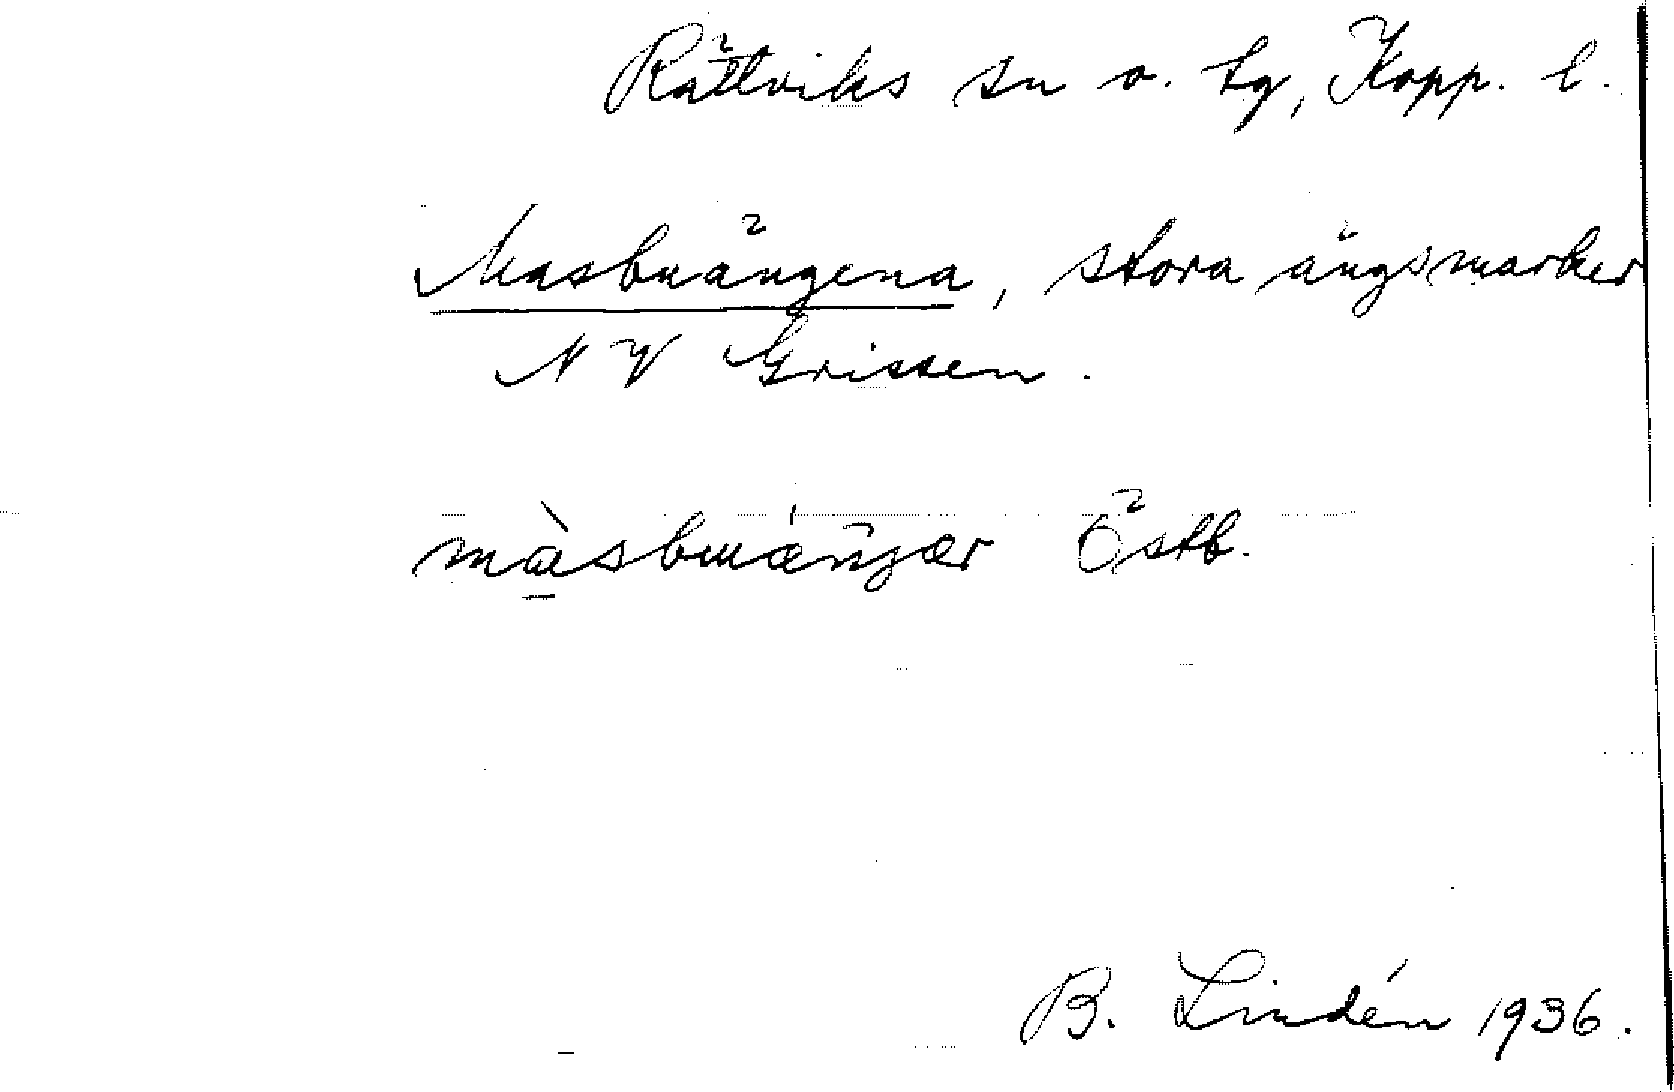 Rättviks sn o. tg, Kopp. l.
Masbuängena, stora ängsmarker
NV Grissen.
Östb.
B. Lindén 1936.